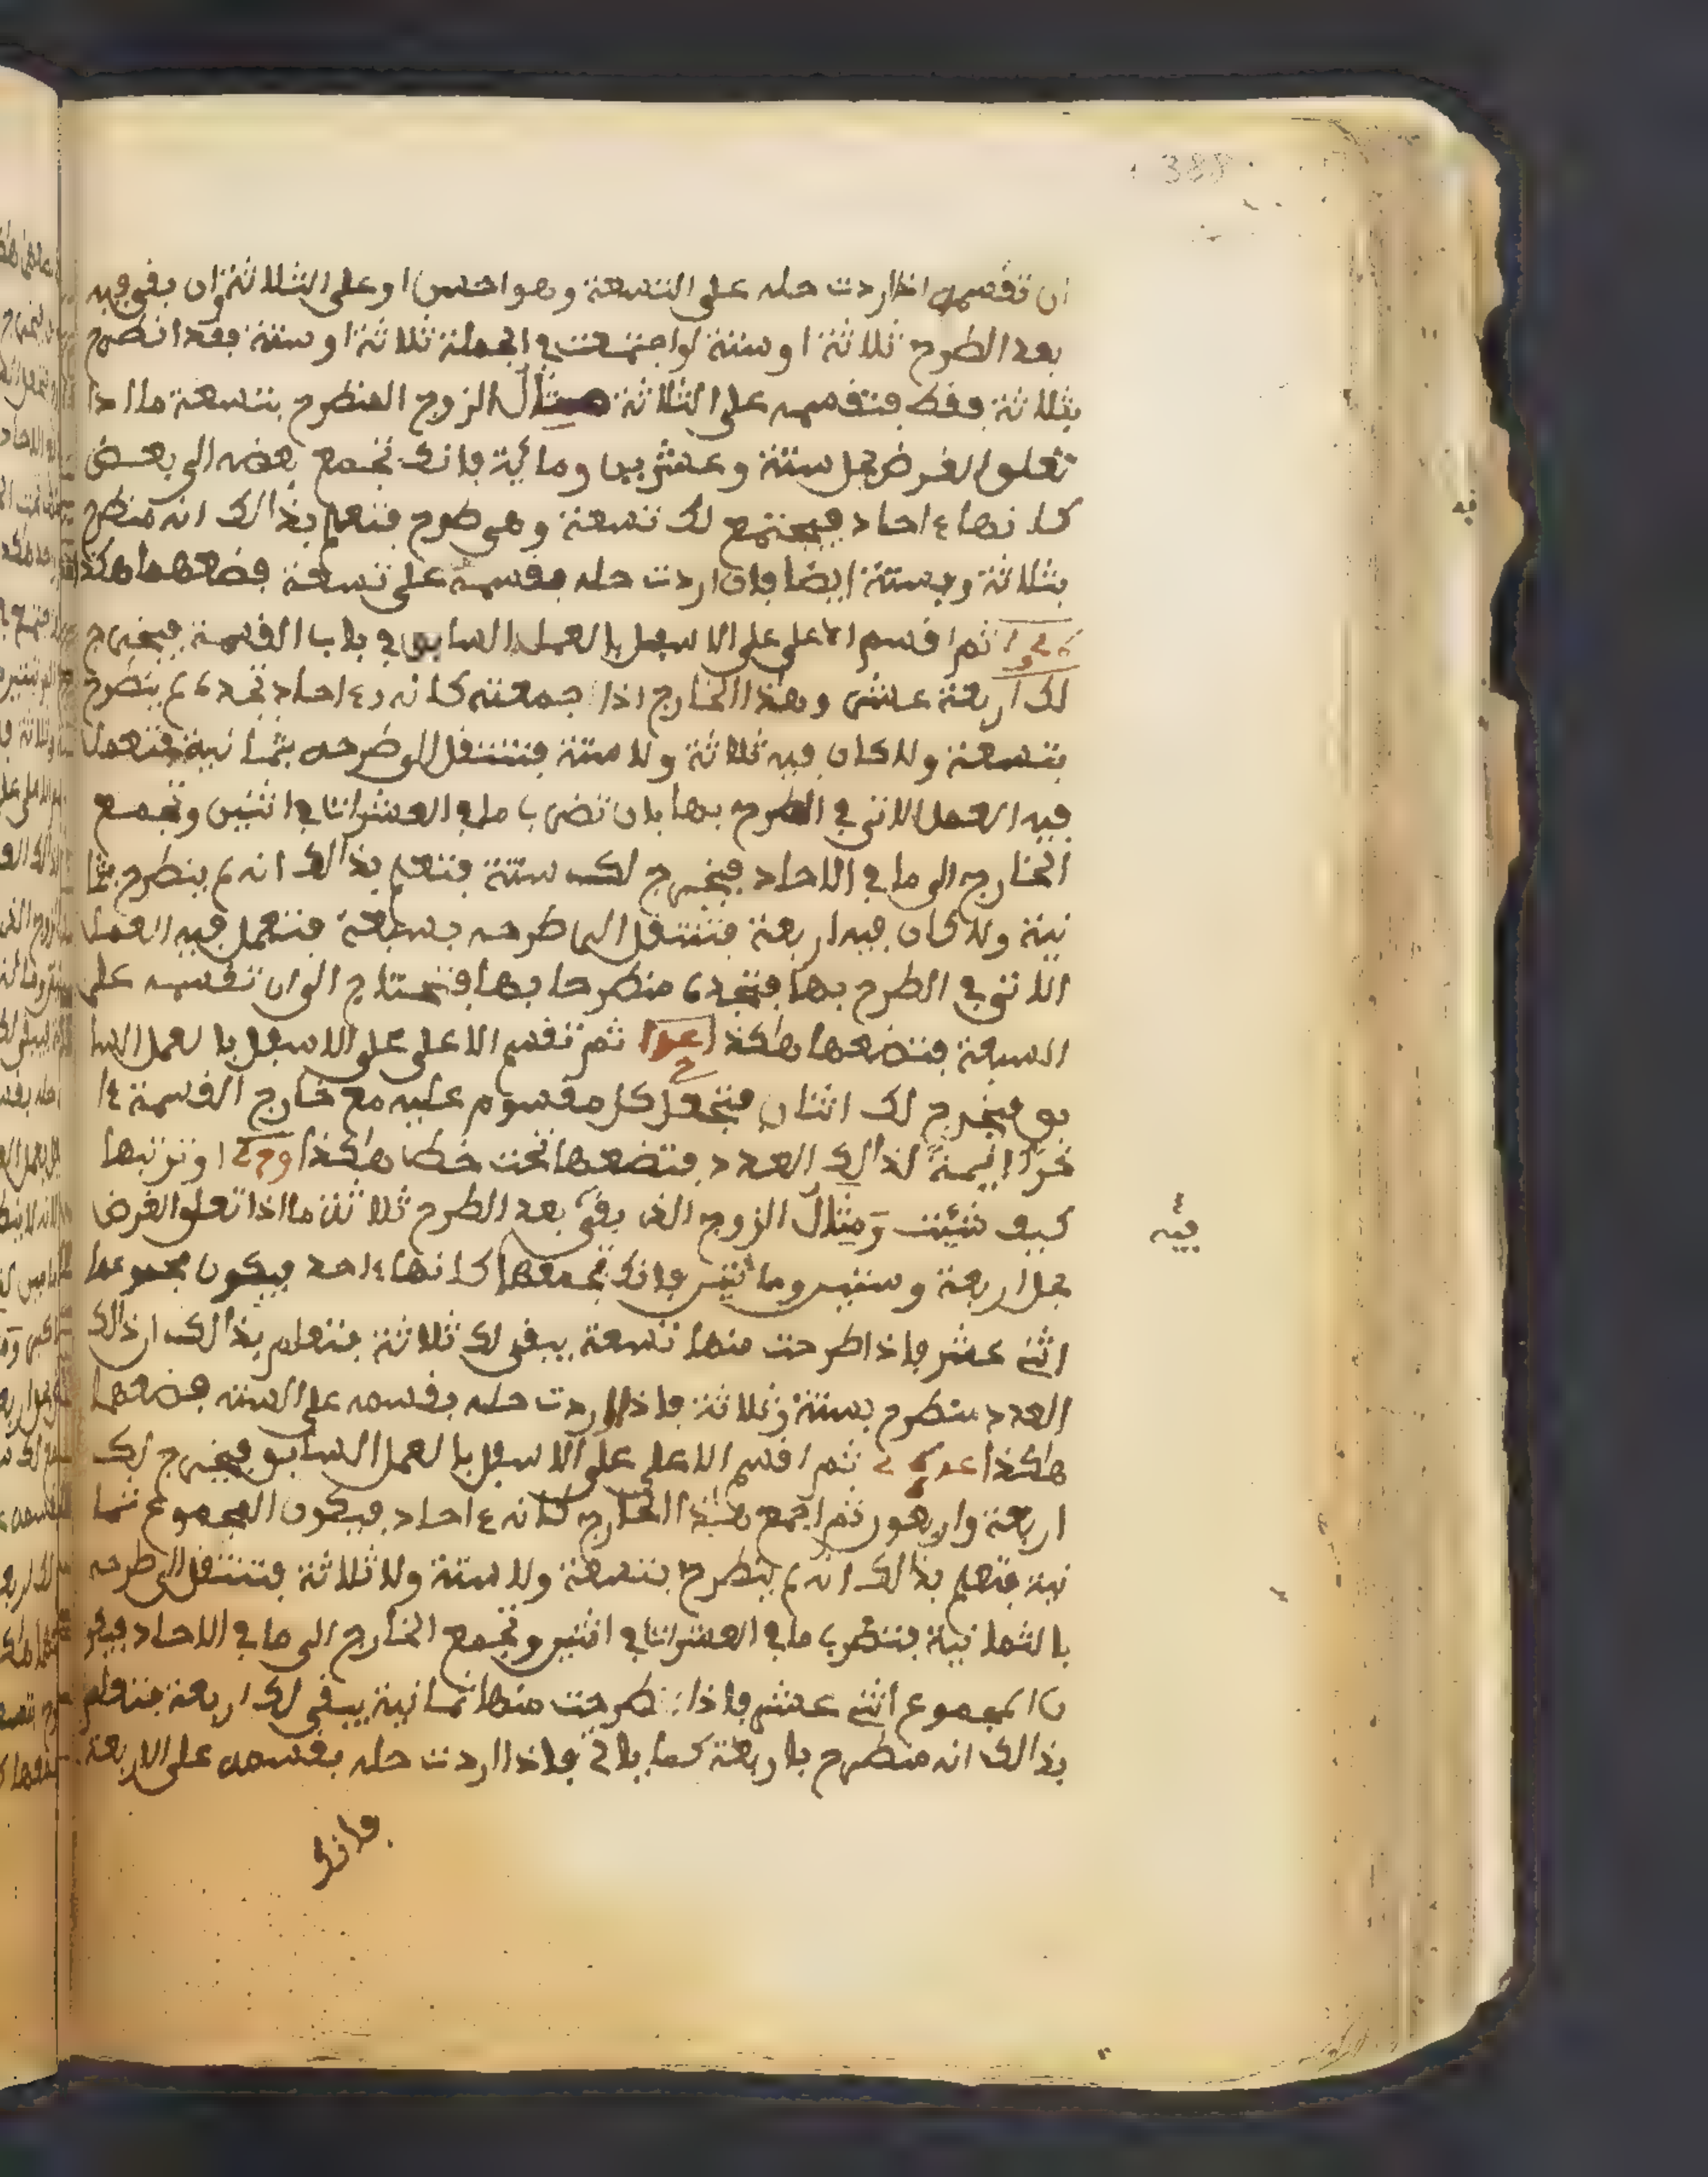 388
ان تقسمه اذا اردت حله على التسعة وهو احسن او على الثلاثة وان بقي فيه
بعد الطرح ثلاثة او ستة لو اجتمعت في الجملة ثلاثة او ستة فقد انطرح
بثلاثة فقط فتقسمه على الثلاثة مثال الزوج المنطرح بتسعة ما اذا
تعلق الغرض بحل ستة وعشرين ومائة فانك تجمع بعضه الى بعض
كانها ءاحاد فيجتمع لك تسعة وهي طرح فتعلم بذالك انه منطرح
بثلاثة وبستة ايضا فان اردت حله بقسمه على تسعة فضعهما هكذا
ثم اقسم الاعلى على الاسفل بالعمل السابق في باب القسمة فيخرج
لك اربعة عشر وهذا الخارج اذا جمعته كانه ءاحاد تجده لم ينطرح
بتسعة ولا كان فيه ثلاثة ولا ستة فتنتقل الى طرحه بثمانية فتعمل
فيه العمل الاتي في الطرح بها بان تضرب ما في العشرات في اثنين وتجمع
الخارج الى ما في الاحاد فيخرج لك ستة فتعلم بذالك انه لم ينطرح بثما
نية ولا كان فيه اربعة فتنتقل الى طرحه بسبعة فتعمل فيه العمل
الاتي في الطرح بها فتجده منطرحا بها فتحتاج الى ان تقسمه على
السبعة فتضعها هكذا ثم تقسم الاعلى على الاسفل بالعمل السا
بق فيخرج لك اثنان فتجعل كل مقسوم عليه مع خارج القسمة ءا
خرا ايمة لذالك العدد فتضعها تحت خط هكذا او ترتبها
كيف شئت ومثال الزوج الذي بقي بعد الطرح ثلاثة ما اذا تعلق الغرض
بحل اربعة وستين ومائتين فانك تجمعها كانها ءاحد فيكون مجموعها
اثني عشر فاذا طرحت منها تسعة يبقى لك ثلاثة فتعلم بذالك ان ذالك
العدد منطرح بستة وثلاثة فاذا اردت حله بقسمه على الستة فضعها
هكذا ثم اقسم الاعلى على الاسفل بالعمل السابق فيخرج لك
اربعة واربعون ثم اجمع هذا الخارج كانه ءاحاد فيكون المجموع ثما
نية فتعلم بذالك انه لم ينطرح بتسعة ولا ستة ولا ثلاثة فتنتقل الى طرحه
بالثمانية فتضرب ما في العشرات في اثنين وتجمع الخارج الى ما في الاحاد فيكو
ن المجموع اثني عشر فاذا طرحت منها ثمانية يبقى لك اربعة فتعلم
بذالك انه منطرح باربعة كما ياتي فاذا اردت حله بقسمه على الاربعة
فانك
فيه